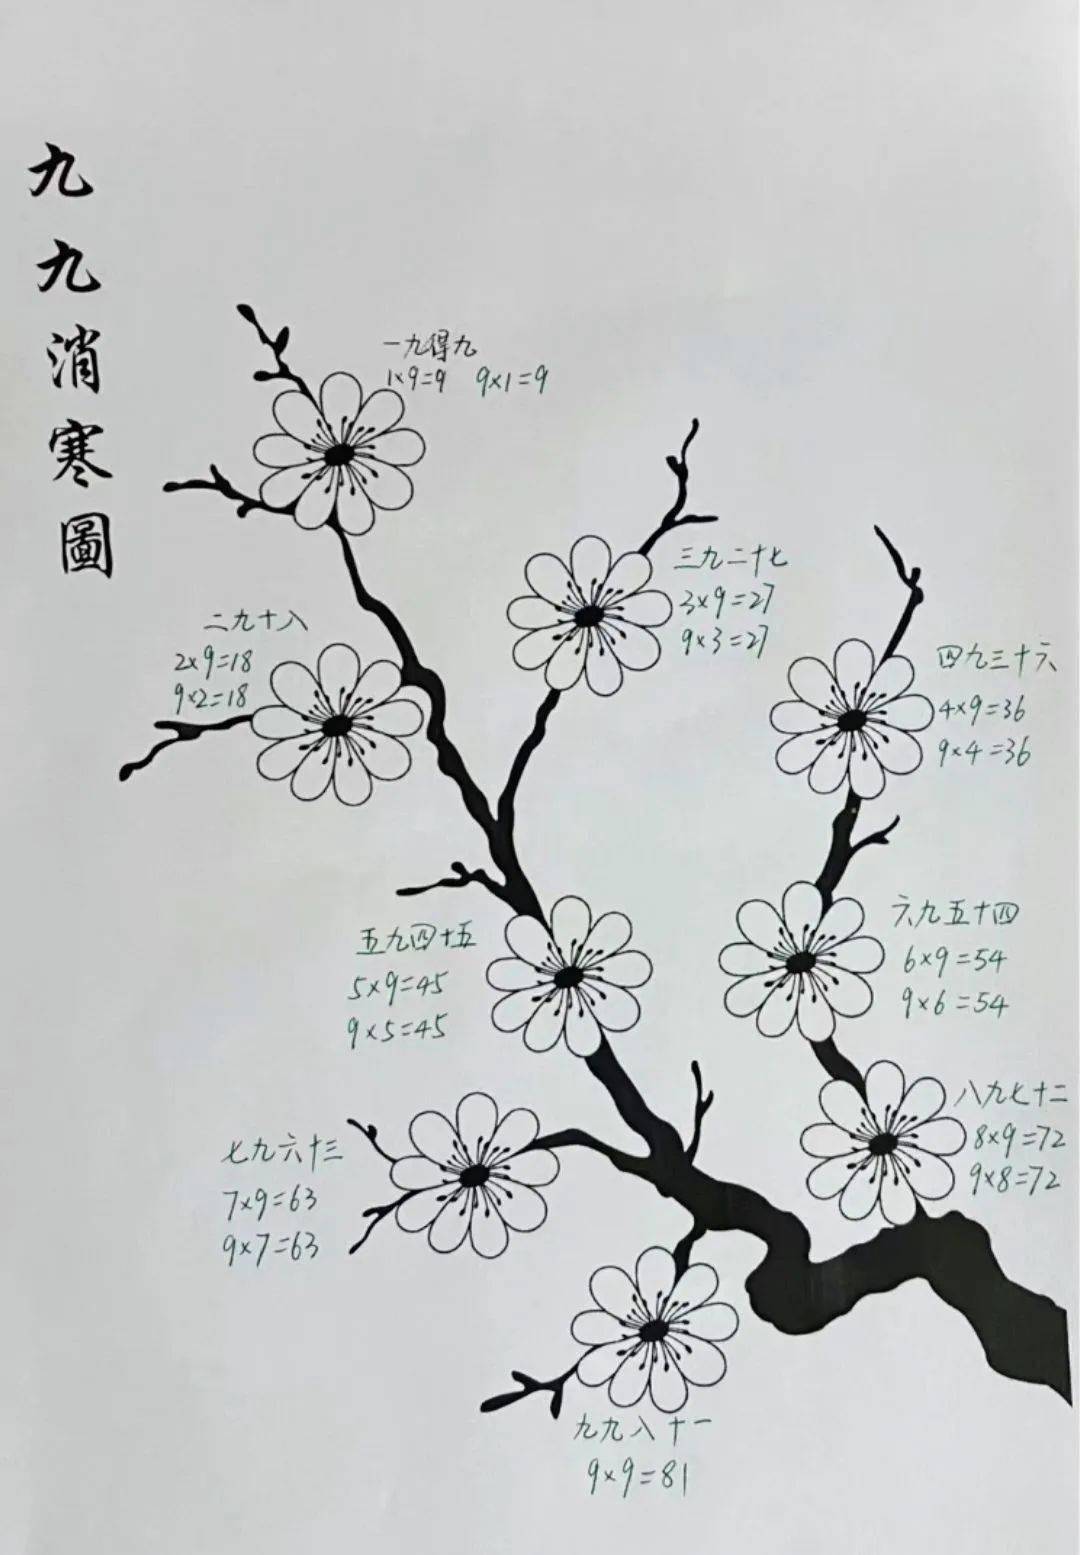 九九消寒圖
一九得九
1×9=9 9×1=9
二九十八
2×9=18
9×2=18
三九二十七
3×9=27
9×3=27
四九三十六
4×9=36
9×4=36
五九四十五
5×9=45
9×5=45
六九五十四
6×9=54
9×6=54
七九六十三
7×9=63
9×7=63
八九七十二
8×9=72
9×8=72
九九八十一
9×9=81